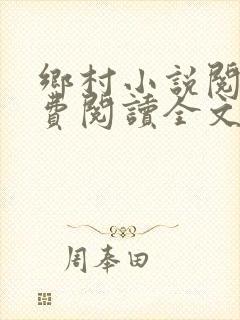 鄉村小說閱
費閱讀全文
周奉田